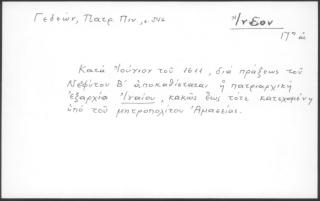 Γεδεών, Πατρ. Πιν., σ. 546
Ἴνεον
Πηά
Κατὰ Ἰούνιον τοῦ 1611, διὰ πράξεως τοῦ
Νεοφύτου Β΄ ἀποκαθίσταται ἡ πατριαρχικὴ
ἐξαρχία Ἰναίου, κακῶς ἕως τότε κατεχομένη
ὑπὸ τοῦ μητροπολίτου Ἀμασείας.